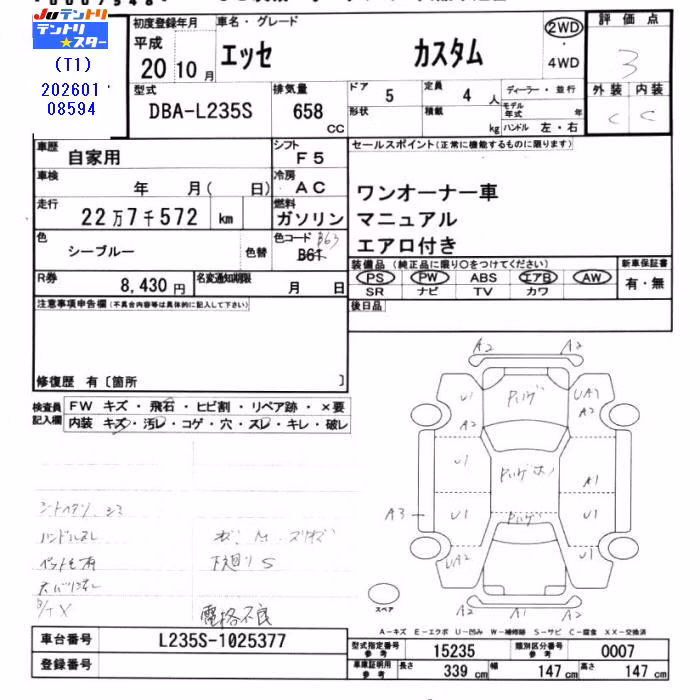 Juテントリ
テントリ
★スター
(T1)
202601
08594
初度登録年月
平成
20 10月
車名・グレード
エッセ カスタム
2WD
・
4WD
評価点
3
外装 内装
C C
型式
DBA-L235S
排気量
658
CC
ドア
5
定員
4 人
形状
積載
kg
ディーラー・並行
モデル年式 年
ハンドル 左・右
車歴
自家用
シフト
F5
車検
年 月( 日)
冷房
AC
走行
22万7千572 km
燃料
ガソリン
色
シーブルー
色替
色コード B63
B61
R券
8,430 円
名変通知期限
月 日
セールスポイント(正常に機能するものに限ります)
ワンオーナー車
マニュアル
エアロ付き
装備品 (純正品に限り○をつけてください)
PS PW ABS エアB AW
SR ナビ TV カワ
新車保証書
有・無
後日品
注意事項申告欄(不具合内容等は具体的に記入して下さい)
修復歴 有〔箇所 〕
検査員記入欄
FW キズ・飛石・ヒビ割・リペア跡・×要
内装 キズ・汚レ・コゲ・穴・スレ・キレ・破レ
ハンドルスレ
下廻りS
電格不良
A2 A2
U1 UA1
A2 A2
U1 A1
A3 U1 U1
UA2 U1
A2 A1 A2
スペア
A-キズ E-エクボ U-凹み W-補修跡 S-サビ C-腐食 XX-交換済
車台番号
L235S-1025377
登録番号
型式指定番号
参考
15235
類別区分番号
参考
0007
車庫証明用
参考
長さ 339 cm 幅 147 cm 高さ 147 cm